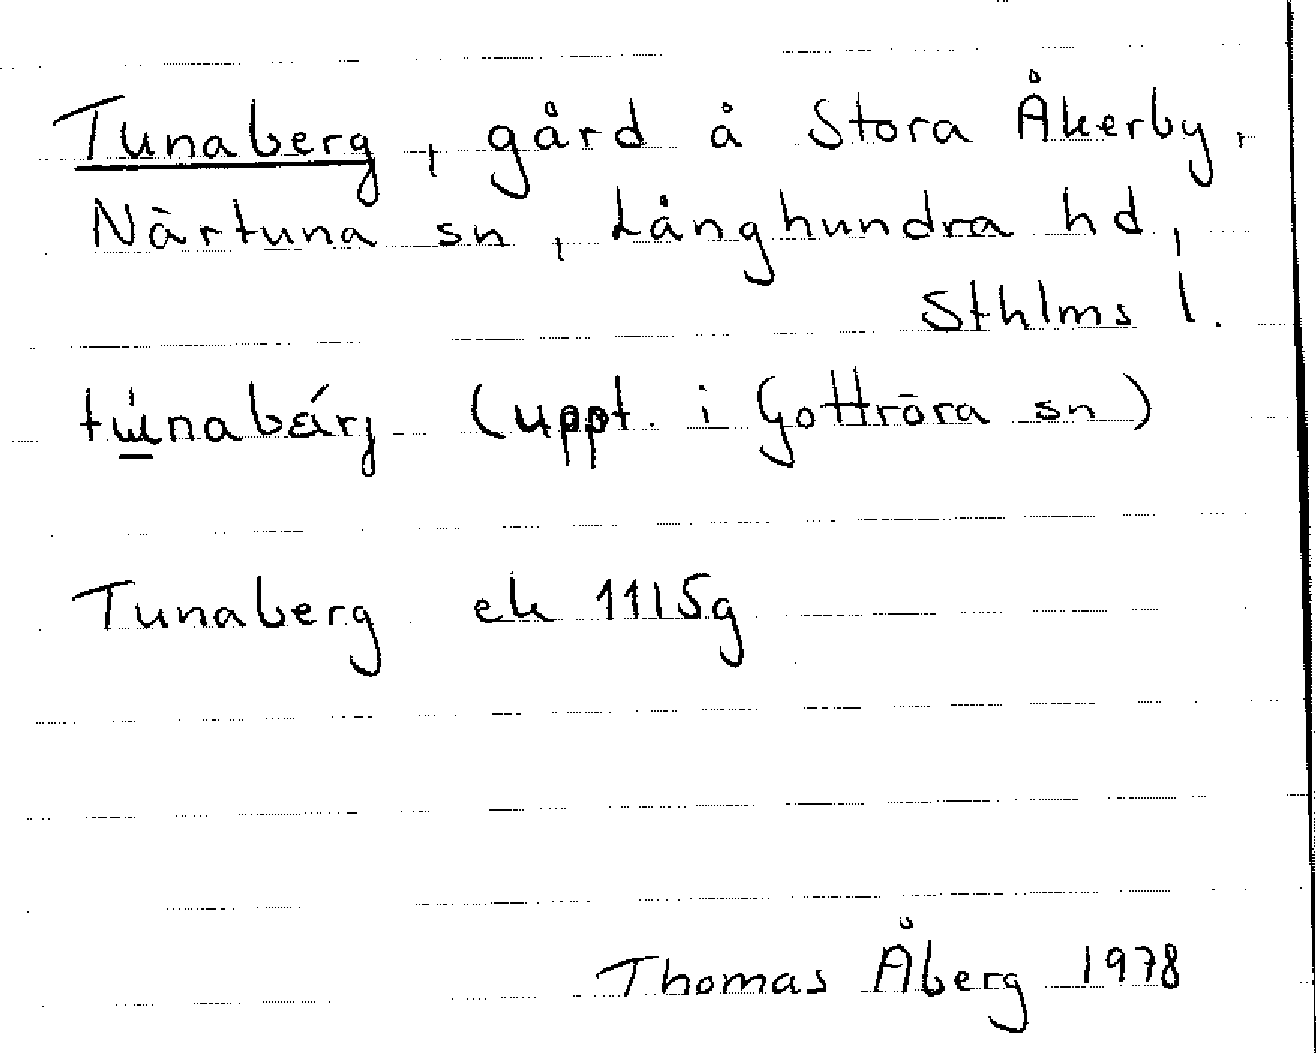 Tunaberg, gård å Stora Åkerby,
Närtuna sn, Långhundra hd,
Sthlms l.
(uppt. i Gottröra sn)
Tunaberg ek 11I5g
Thomas Åberg 1978